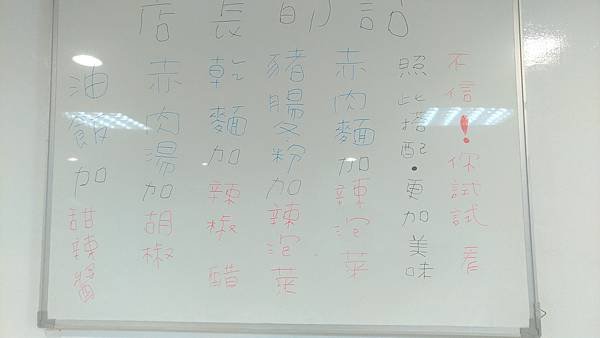 店長的話
油飯加甜辣醬
赤肉湯加胡椒
乾麵加辣椒醋
豬腸冬粉加辣泡菜
赤肉麵加辣泡菜
照此搭配·更加美味
不信!你試試看